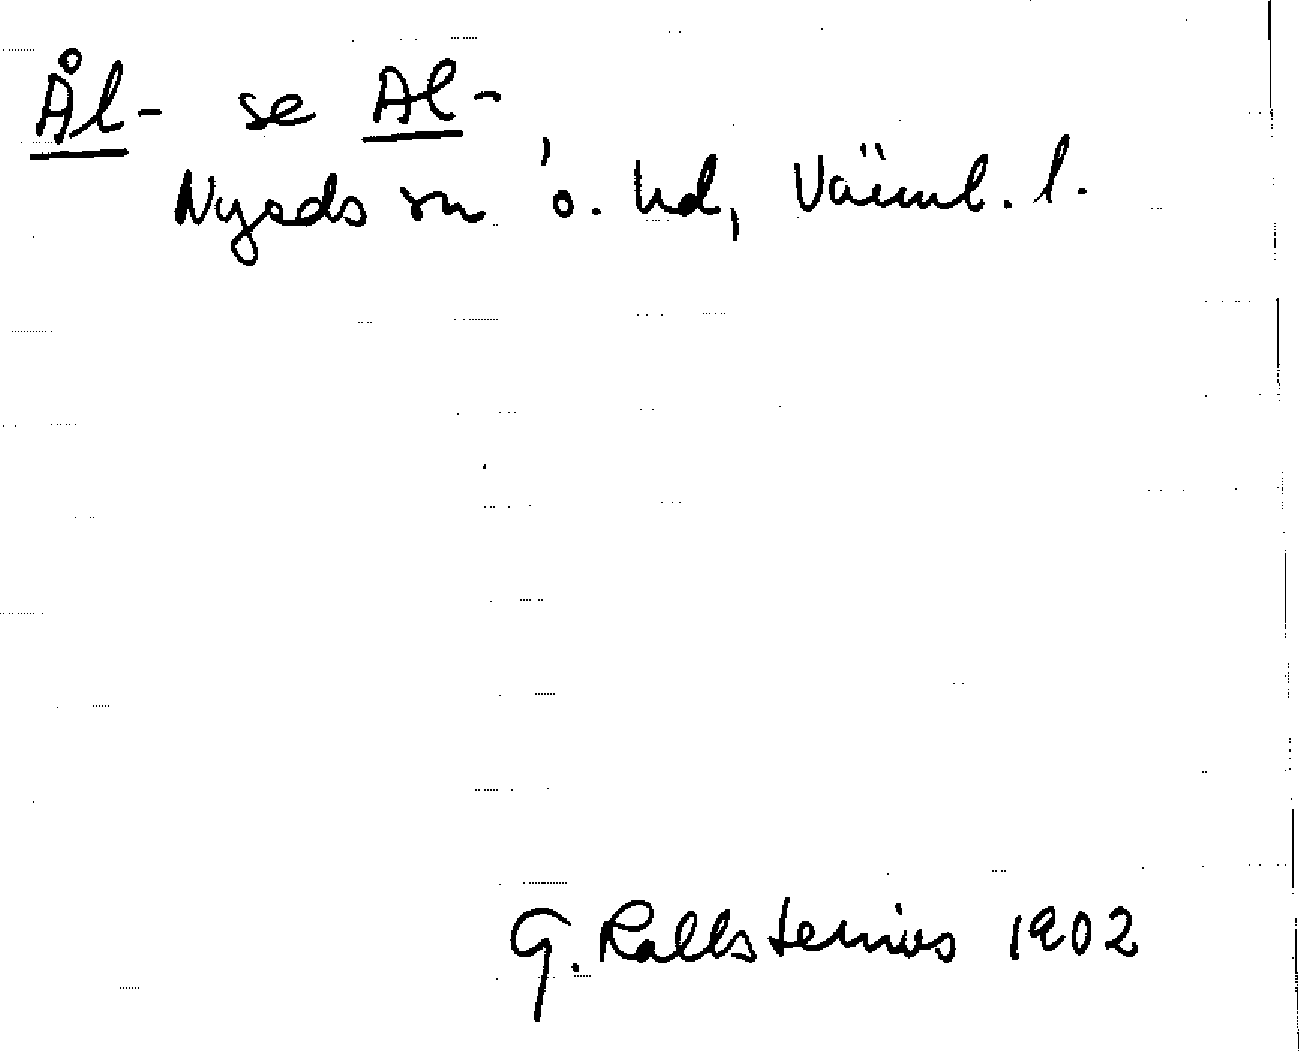 Ål- se Al-
Nyeds sn o. hd, Värml. l.
G. Kallstenius 1902